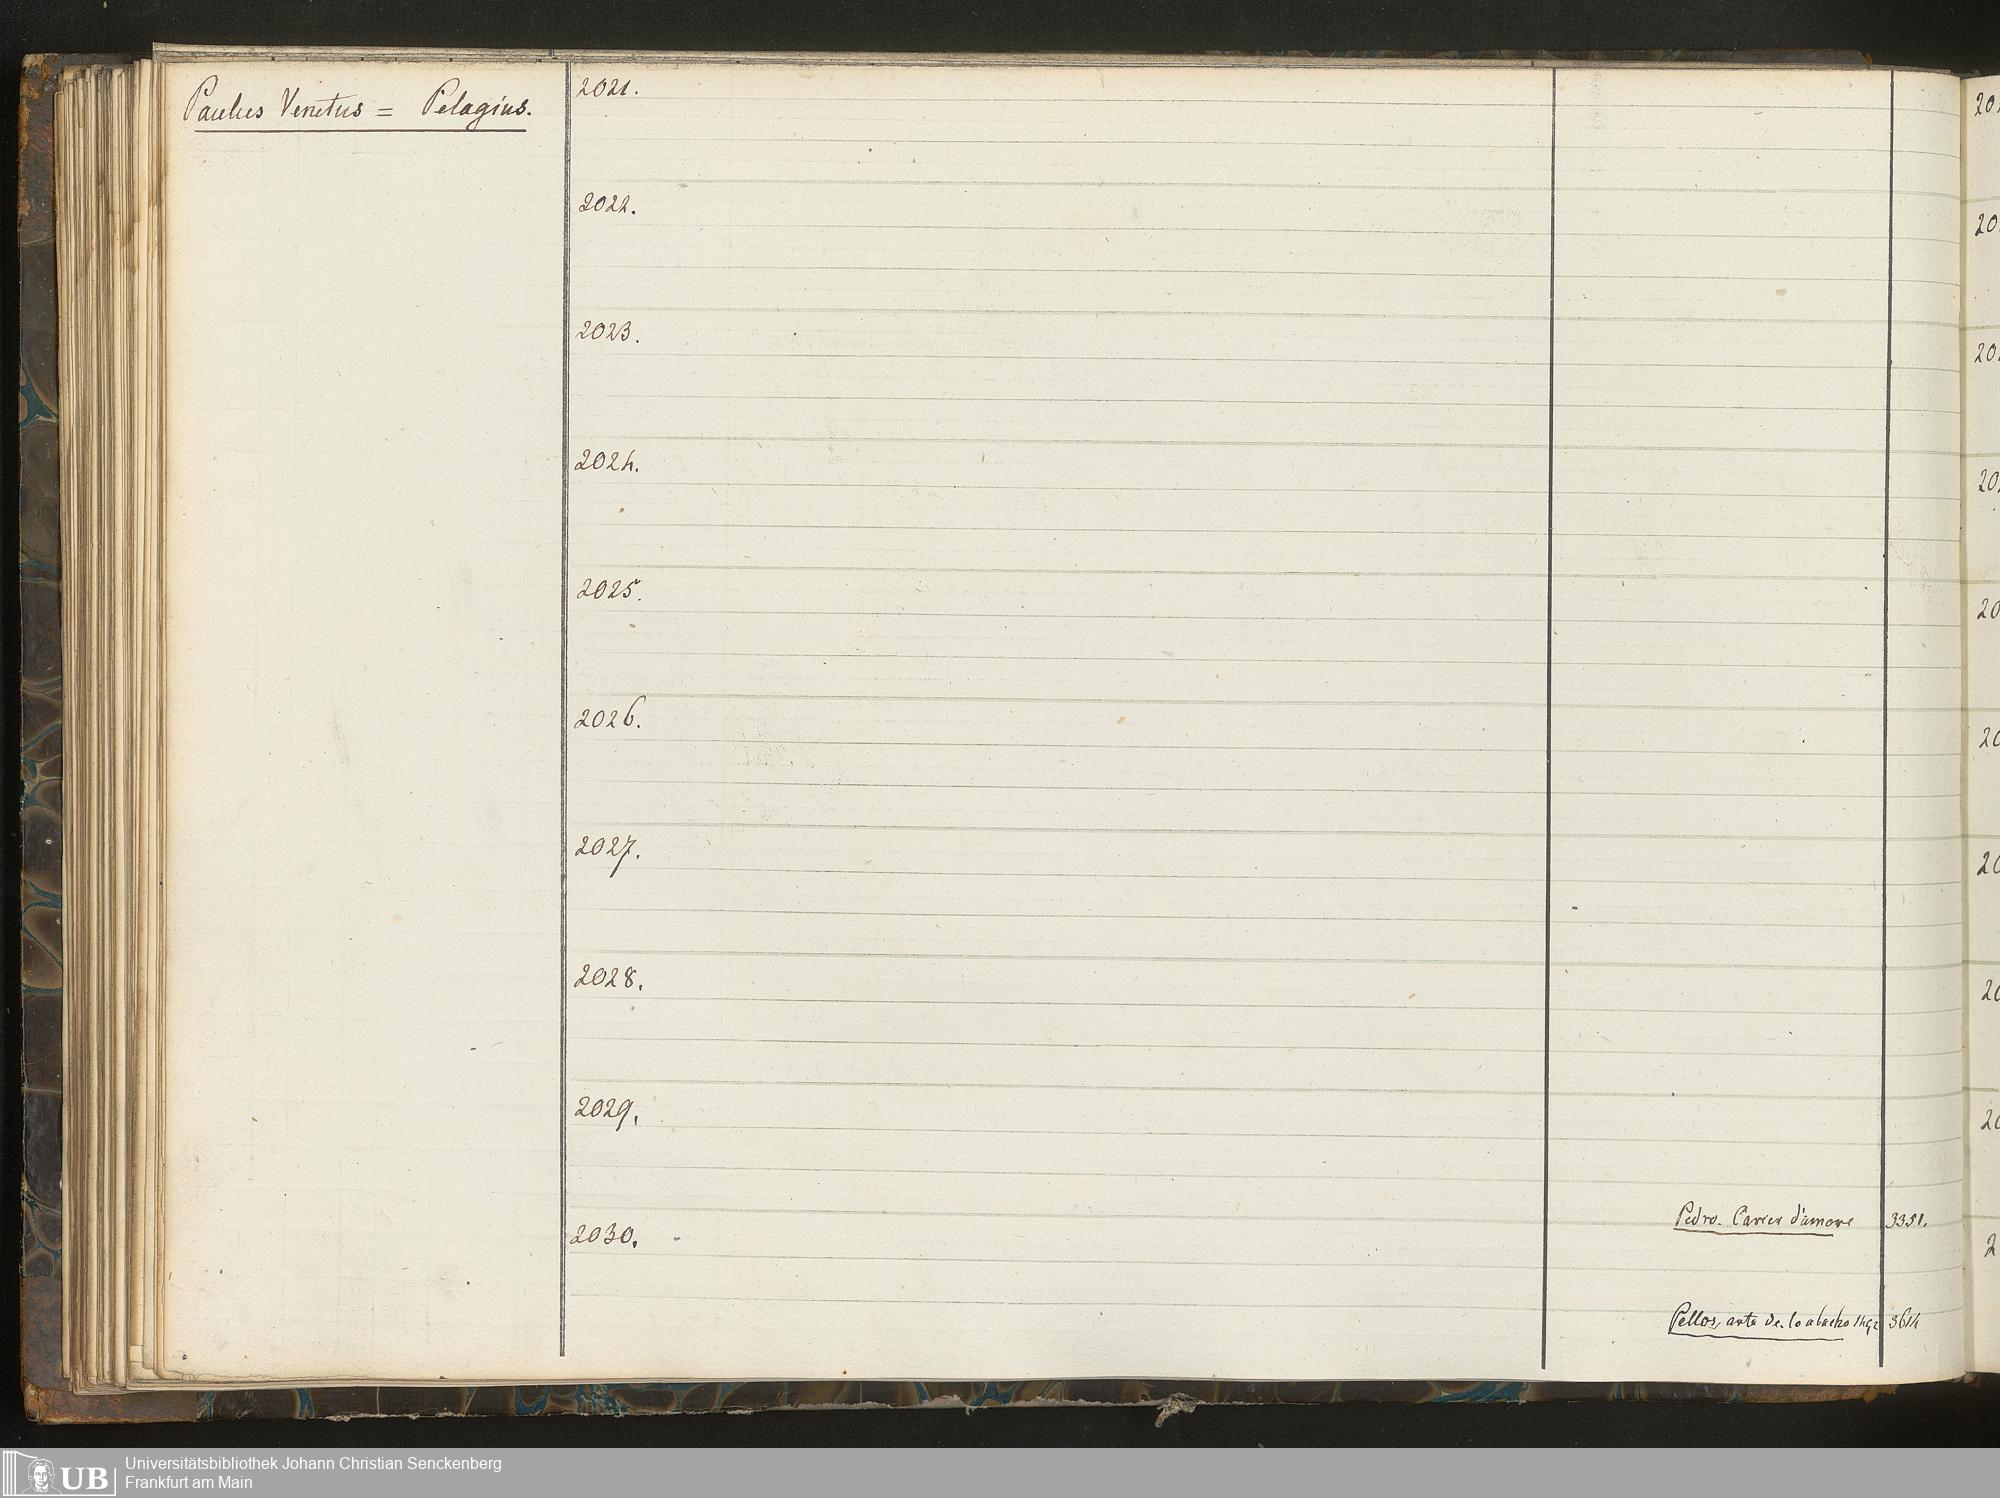 Paulus Venetus = Pelagius.
2021.
2022.
2023.
2024.
2025.
2026.
2027.
2028.
2029.
Pedro. Carcer d'amore 3351.
2030.
Pellos, arte de lo abacho 1492 3614
Universitätsbibliothek Johann Christian Senckenberg
UB Frankfurt am Main